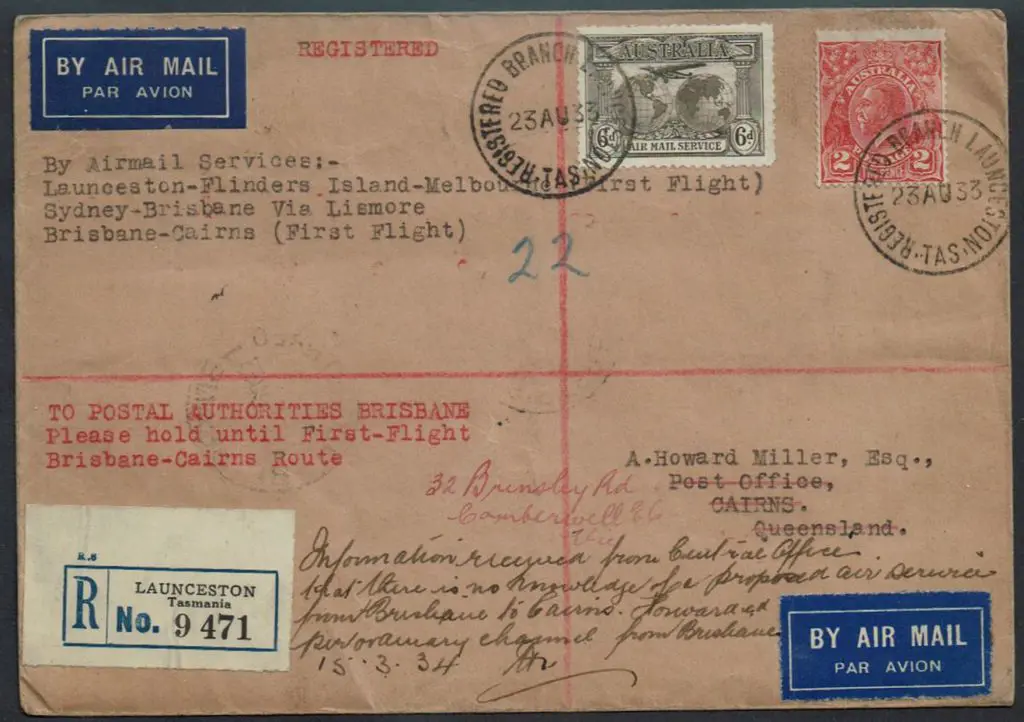 BY AIR MAIL
PAR AVION
REGISTERED
REGISTERED BRANCH LAUNCESTON
23 AU 33
TAS.
AUSTRALIA
6d 6d
AIR MAIL SERVICE
AUSTRALIA
2 2
PENCE
REGISTERED BRANCH LAUNCESTON
23 AU 33
TAS.
By Airmail Services:-
Launceston-Flinders Island-Melbou irst Flight)
Sydney-Brisbane Via Lismore
Brisbane-Cairns (First Flight)
22
TO POSTAL AUTHORITIES BRISBANE
Please hold until First-Flight
Brisbane-Cairns Route
A.Howard Miller, Esq.,
Post Office,
CAIRNS.
Queensland.
32 Brinsley Rd
Camberwell E6
Vic
Information received from Central Office
that there is no knowledge of a proposed air service
from Brisbane to Cairns. Forwarded
per ordinary channel from Brisbane
15.3.34
R.6
R
LAUNCESTON
Tasmania
No. 9 471
BY AIR MAIL
PAR AVION